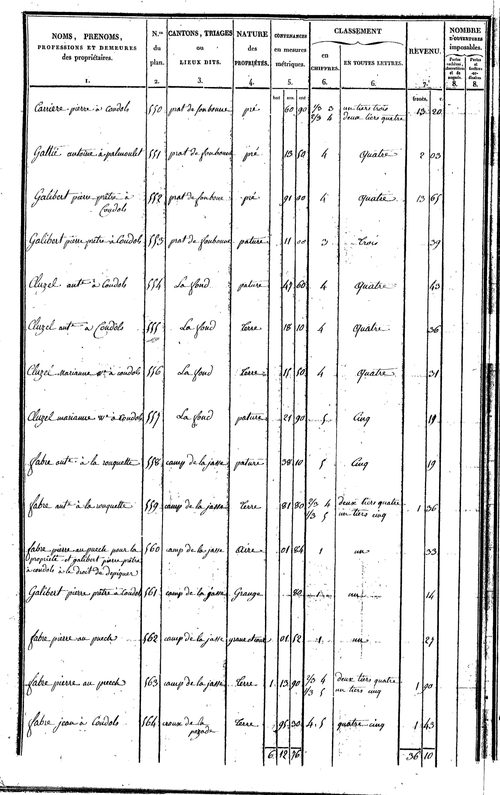 NOMS, PRENOMS,
PROFESSIONS ET DEMEURES
des propriétaires.
1.
N.os
du
plan.
2.
CANTONS, TRIAGES
ou
LIEUX DITS.
3.
NATURE
des
PROPRIÉTÉS.
4.
CONTENANCES
en mesures
métriques.
5.
CLASSEMENT
en
CHIFFRES.
6.
EN TOUTES LETTRES.
6.
REVENU.
7.
NOMBRE
D'OUVERTURES
imposables.
8.
8.
francs. c.
Carriere pierre à Coudols 550 prat de fonbonne pré 60 90 1/3 3 un tiers trois 13 20
2/3 4 deux tiers quatre
Galtié antoine à palmoulet 551 prat de fonbonne pré 13 50 4 quatre 2 03
Galibert pierre prêtre à 552 prat de fonbonne pré 91 00 4 quatre 13 65
Coudols
Galibert pierre prêtre à Coudols 553 prat de fonbonne pature 11 00 3 Trois 39
Cluzel ant.e à Coudols 554 La fond pature 47 60 4 quatre 43
Cluzel ant.e à Coudols 555 La fond Terre 18 10 4 quatre 36
Cluzel marianne v.e à coudols 556 La fond Terre 15 50 4 quatre 31
Cluzel marianne v.e à Coudols 557 La fond pature 21 90 5 Cinq 19
fabre ant.e à la rouquette 558 camp de la jasse pature 38 10 5 Cinq 19
fabre ant.e à la rouquette 559 camp de la jasse Terre 81 80 2/3 4 deux tiers quatre 1 36
1/3 5 un tiers cinq
fabre pierre au puech pour la 560 camp de la jasse Aire 01 84 1 un 33
propriété et galibert pierre prêtre
à coudols à le droit de dépiquer
Galibert pierre prêtre à Coudols 561 camp de la jasse Grange 80 1 un 14
fabre pierre au puech 562 camp de la jasse 01 52 1 un 27
fabre pierre au puech 563 camp de la jasse Terre 1 13 90 1/3 4 deux tiers quatre 1 90
1/3 5 un tiers cinq
fabre jean à Coudols 564 croux de la Terre 95 30 4.5 quatre cinq 1 43
pezade
6 12 76 36 10